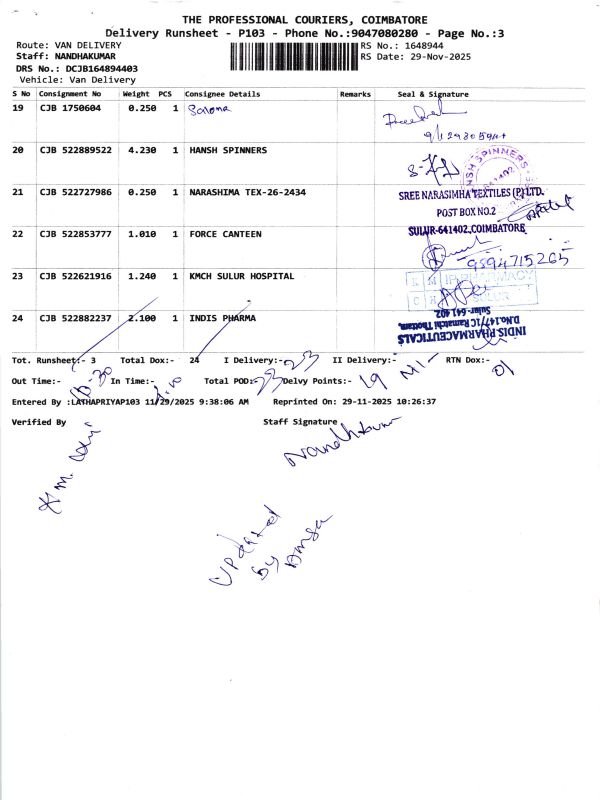 THE PROFESSIONAL COURIERS, COIMBATORE
Delivery Runsheet - P103 - Phone No.:9047080280 - Page No.:3
Route: VAN DELIVERY RS No.: 1648944
Staff: NANDHAKUMAR RS Date: 29-Nov-2025
DRS No.: DCJB164894403
Vehicle: Van Delivery
S No Consignment No Weight PCS Consignee Details Remarks Seal & Signature
19 CJB 1750604 0.250 1
20 CJB 522889522 4.230 1 HANSH SPINNERS
HANSH SPINNERS
21 CJB 522727986 0.250 1 NARASHIMA TEX-26-2434
SREE NARASIMHA TEXTILES (P) LTD.
POST BOX NO.2
SULUR-641402, COIMBATORE
22 CJB 522853777 1.010 1 FORCE CANTEEN
9594715265
23 CJB 522621916 1.240 1 KMCH SULUR HOSPITAL
K M IP PHARMACY
C H SULUR
24 CJB 522882237 2.100 1 INDIS PHARMA
INDIS PHARMACEUTICALS
D.No.147/1C Ramatchi Thottam,
Sulur - 641 402
Tot. Runsheet:- 3 Total Dox:- 24 I Delivery:- 23 II Delivery:- Nil RTN Dox:- 01
Out Time:- 10-30 In Time:- Total POD:- 23 Delvy Points:- 19
Entered By :LATHAPRIYAP103 11/29/2025 9:38:06 AM Reprinted On: 29-11-2025 10:26:37
Verified By Staff Signature
Nandhakumar
Updated
by